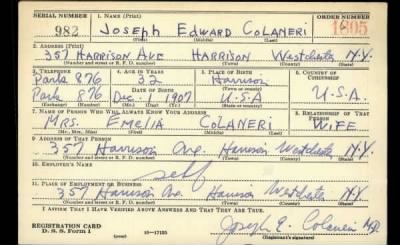 SERIAL NUMBER 1. NAME (Print) ORDER NUMBER
982 JOSEPH EDWARD COLANERI 1605
(First) (Middle) (Last)
2. ADDRESS (Print)
357 HARRISON AVE HARRISON Westchester N.Y.
(Number and street or R. F. D. number) (Town) (County) (State)
3. TELEPHONE 4. AGE IN YEARS 5. PLACE OF BIRTH 6. COUNTRY OF CITIZENSHIP
Park 876 32 Harrison
DATE OF BIRTH (Town or county)
Park 876 Dec. 1 1907 U.S.A U.S.A.
(Exchange) (Number) (Mo.) (Day) (Yr.) (State or country)
7. NAME OF PERSON WHO WILL ALWAYS KNOW YOUR ADDRESS 8. RELATIONSHIP OF THAT PERSON
MRS. EMELIA COLANERI WIFE
(Mr., Mrs., Miss) (First) (Middle) (Last)
9. ADDRESS OF THAT PERSON
357 Harrison Ave. Harrison Westchester N.Y.
(Number and street or R. F. D. number) (Town) (County) (State)
10. EMPLOYER'S NAME
self
11. PLACE OF EMPLOYMENT OR BUSINESS
357 Harrison Ave. Harrison Westchester N.Y.
(Number and street or R. F. D. number) (Town) (County) (State)
I AFFIRM THAT I HAVE VERIFIED ABOVE ANSWERS AND THAT THEY ARE TRUE.
REGISTRATION CARD
D. S. S. Form 1 16-17105 Joseph E. Colaneri M.D.
(Registrant's signature)